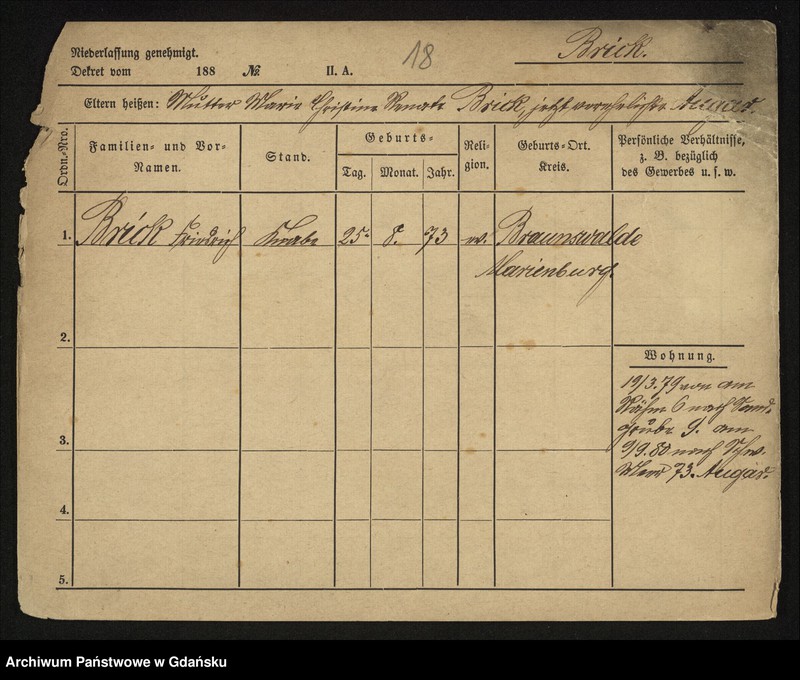 Niederlassung genehmigt.
18
Brick.
Dekret vom 188 № II. A.
Eltern heißen: Mutter Marie Christine Renate Brick, jetzt verehelichte
Ordn.-Nro.
Familien- und Vor-
Namen.
Stand.
Geburts-
Tag. Monat. Jahr.
Reli-
gion.
Geburts-Ort.
Kreis.
Persönliche Verhältnisse,
z. B. bezüglich
des Gewerbes u. s. w.
1. Brick Friedrich Knabe 25. 8. 73 Braunswalde
Marienburg.
2.
Wohnung.
19/3.79 von am
Rähm 6 nach Sand-
grube 9. am
9/9.80 nach Schw.
Meer 73.
3.
4.
5.
Archiwum Państwowe w Gdańsku